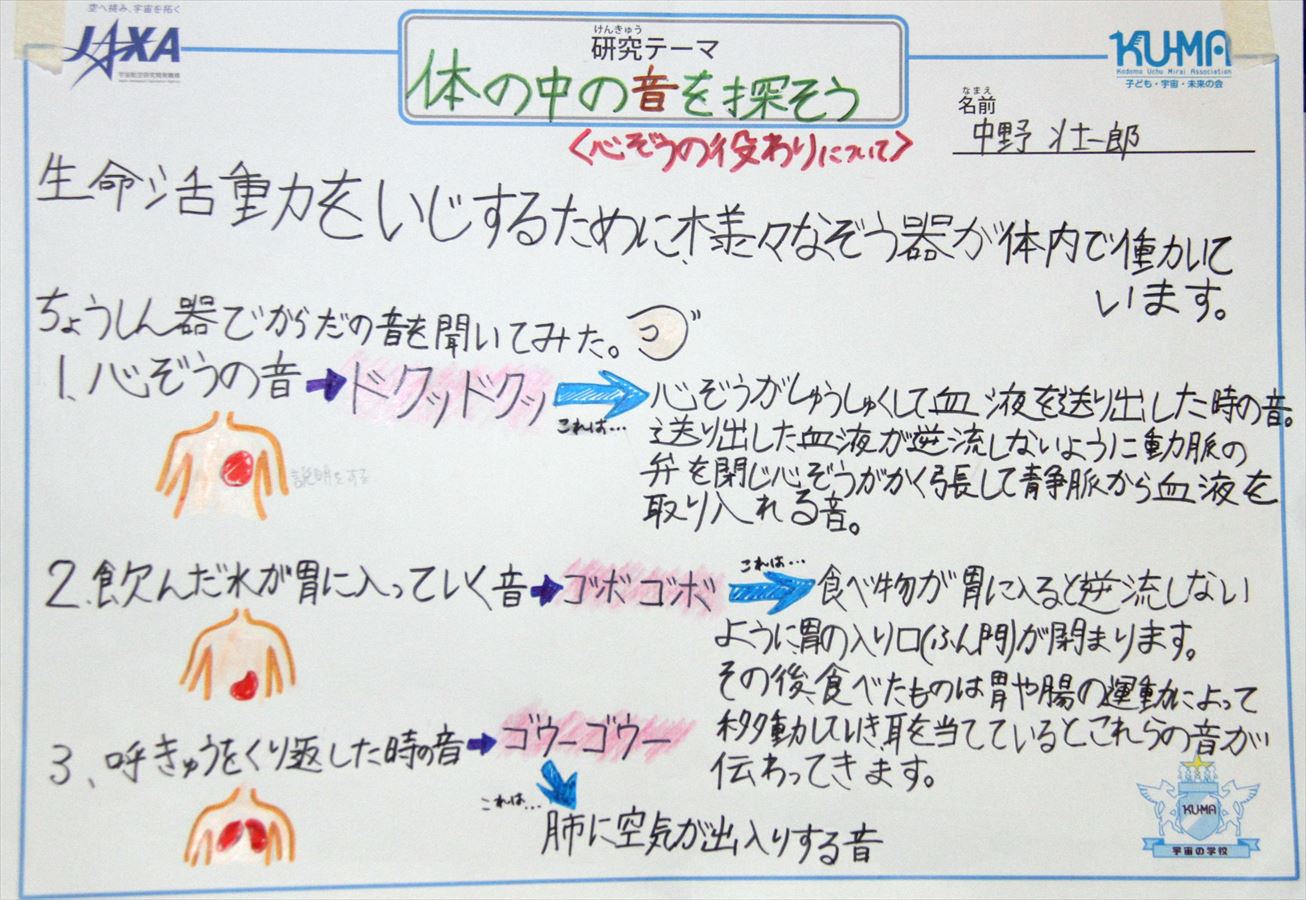 空へ挑み、宇宙を拓く
JAXA
宇宙航空研究開発機構
けんきゅう
研究テーマ
体の中の音を探そう
<心ぞうの役わりについて>
KU-MA
Kodomo Uchu Mirai Association
子ども・宇宙・未来の会
なまえ
名前
中野 壮一郎
生命活動力をいじするために、様々なぞう器が体内で働かいて
います。
ちょうしん器でからだの音を聞いてみた。
1、心ぞうの音→ドクッドクッ
これは…
心ぞうがしゅうしゅくして血液を送り出した時の音。
送り出した血液が逆流しないように動脈の
弁を閉じ心ぞうがかく張して静脈から血液を
取り入れる音。
説明をする
2、飲んだ水が胃に入っていく音→ゴボゴボ
これは…
食べ物が胃に入ると逆流しない
ように、胃の入り口(ふん門)が閉まります。
その後、食べたものは胃や腸の運動によって
移動していき、耳を当てているとこれらの音が
伝わってきます。
3、呼きゅうをくり返した時の音→ゴウーゴウー
これは…
肺に空気が出入りする音
KU-MA
宇宙の学校